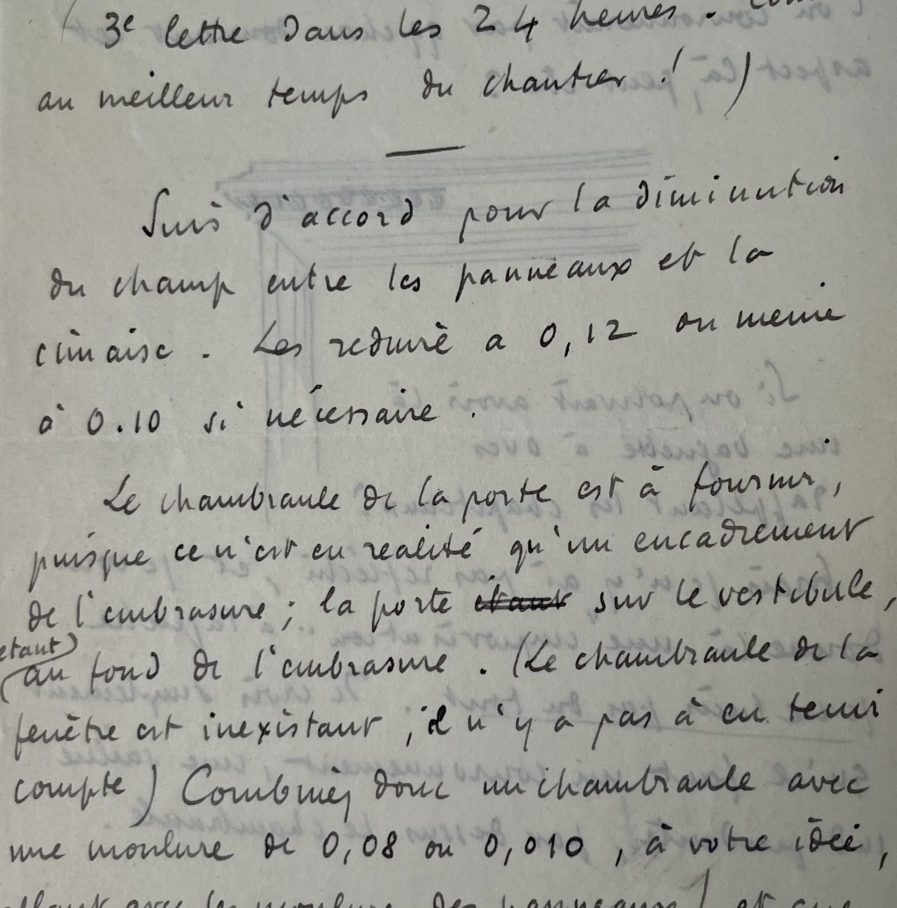 3e lettre dans les 24 heures.
au meilleur temps du chantier ! )
Suis d'accord pour la diminution
du champ entre les panneaux et la
cimaise. Les reduire a 0,12 ou meme
à 0.10 si nécessaire.
Le chambranle de la porte est à fournir,
puisque ce n'est en realité qu'un encadrement
de l'embrasure ; la porte etant sur le vestibule,
etant
au fond de l'embrasure. (Le chambranle de la
fenêtre est inexistant, il n'y a pas à en tenir
compte) Combinez donc un chambranle avec
une moulure de 0,08 ou 0,010, à votre idée,
avec les moulure des panneaux ! et que